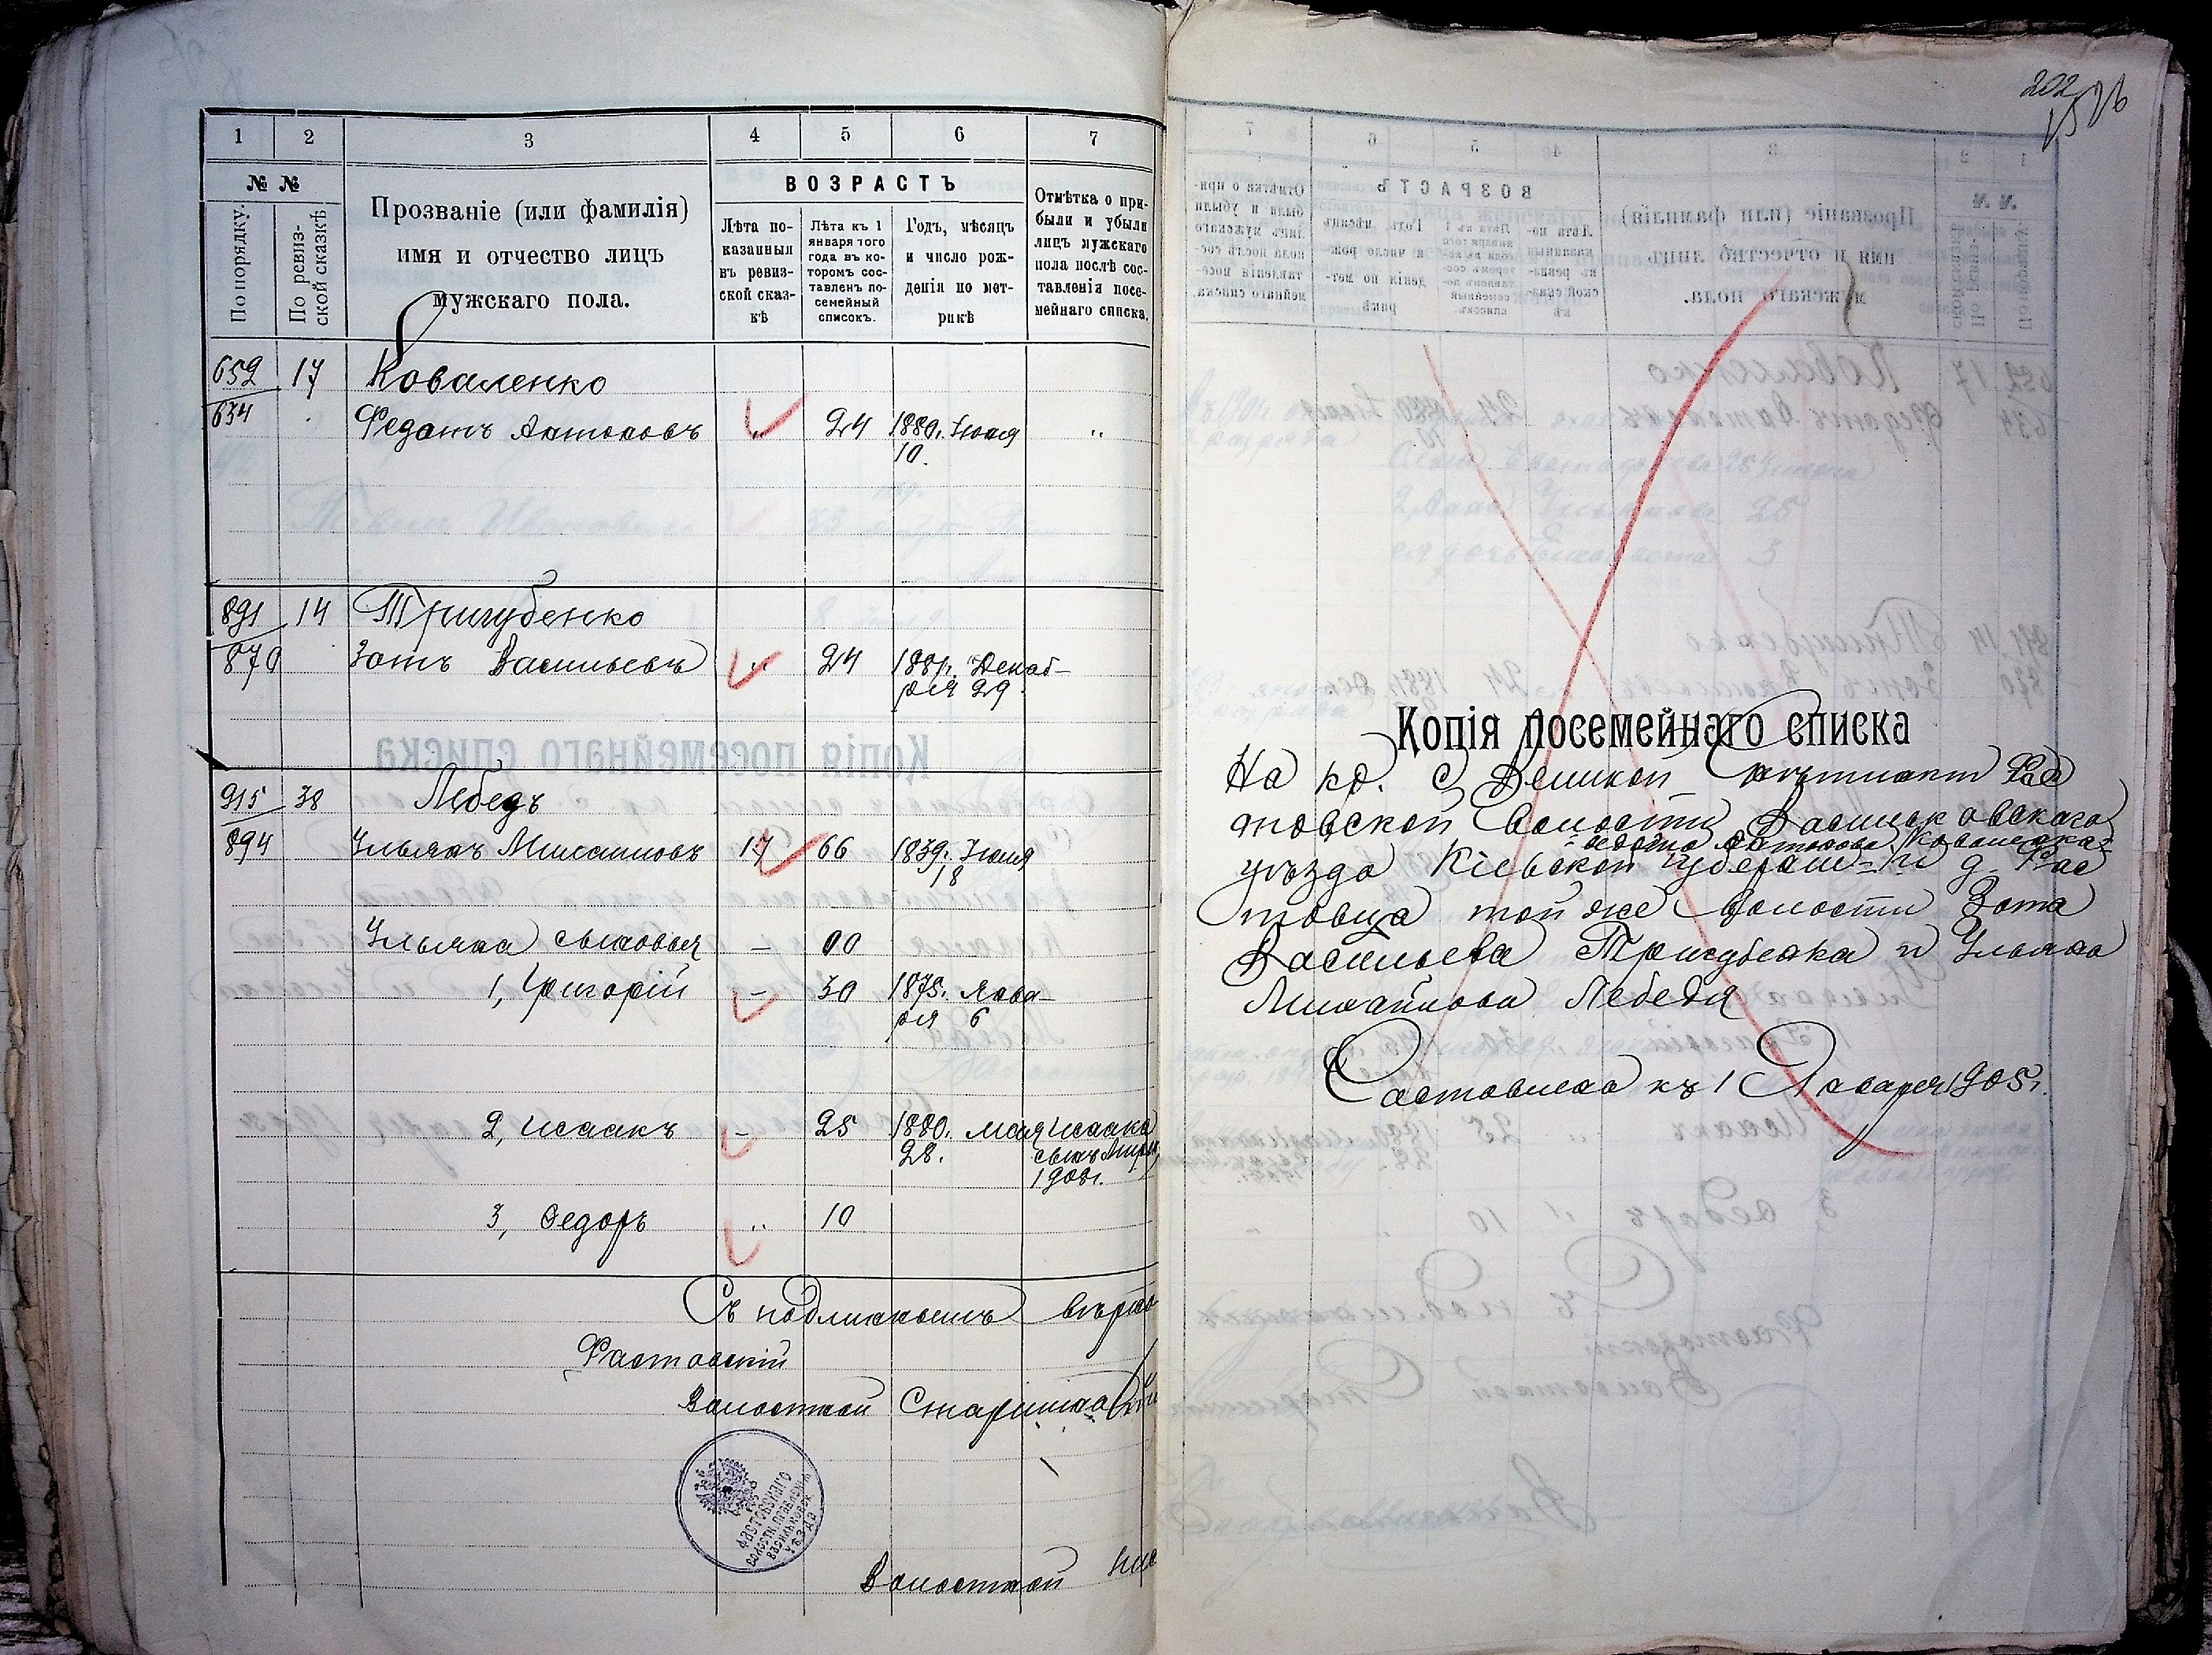 1 2 3 4 5 6 7
№ №
По порядку.
По ревиз-
ской сказкѣ
Прозваніе (или фамилія)
имя и отчество лицъ
мужскаго пола.
ВОЗРАСТЪ
Лѣта по-
казанныя
въ ревиз-
ской сказ-
кѣ
Лѣта къ 1
января того
года въ ко-
торомъ сос-
тавленъ по-
семейный
списокъ.
Годъ, мѣсяцъ
и число рож-
денія по мет-
рикѣ
Отмѣтка о при-
были и убыли
лицъ мужскаго
пола послѣ сос-
тавленія посе-
мейнаго списка.
652 17 Коваленко
634 Федотъ Антоновъ 24 1880г. Іюля
10.
891 14 Тригубенко
870 Зотъ Васильевъ 24 1881г. Декаб-
ря 29.
915 38 Лебедь
894 Ульянъ Михайловъ 17 66 1839г. Іюля
18
Ульяна сыновья – 00
1, Григорій – 30 1875г. Янва-
ря 6
2, Исаакъ – 25 1880г. мая Исаака
28. сынъ
1903г.
3, Федоръ 10
Съ подлиннымъ вѣрно
Фастовскій
Волостной Старшина
ФАСТОВСКАГО
ВОЛОСТН. ПРАВЛЕНІЯ
ВАСИЛЬКОВСК.
УѢЗДА
Волостной пис
202
Копія посемейнаго списка
На кр. с. Великой Снѣтинки Фас
товской волости Васильковскаго
Федота Антонова Коваленка
уѣзда Кіевской губерніи и д. Фас
товца той же волости Зота
Васильева Тригубенка и Ульяна
Михайлова Лебедя
Составлена къ 1 Января 1905г.